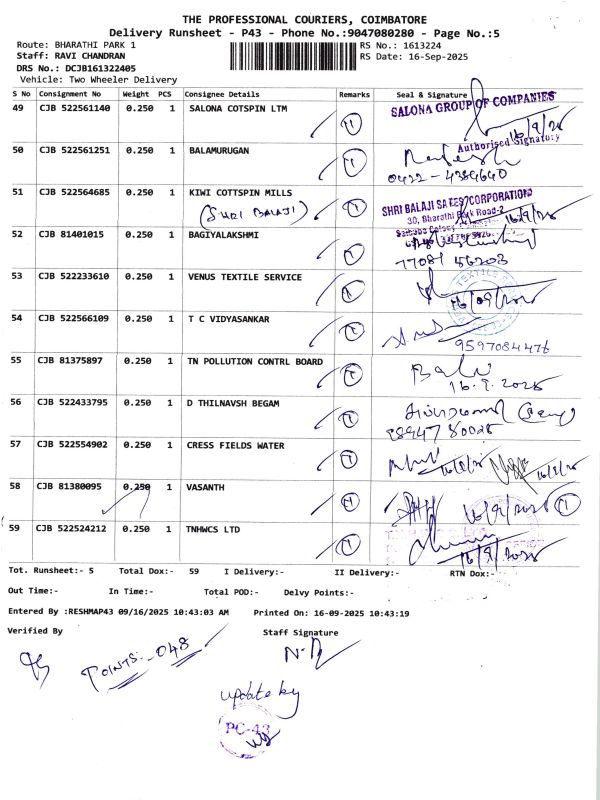 THE PROFESSIONAL COURIERS, COIMBATORE
Delivery Runsheet - P43 - Phone No.:9047080280 - Page No.:5
Route: BHARATHI PARK 1
RS No.: 1613224
Staff: RAVI CHANDRAN
RS Date: 16-Sep-2025
DRS No.: DCJB161322405
Vehicle: Two Wheeler Delivery
S No Consignment No Weight PCS Consignee Details Remarks Seal & Signature
49 CJB 522561140 0.250 1 SALONA COTSPIN LTM
SALONA GROUP OF COMPANIES
16/9/25
Authorised Signatory
50 CJB 522561251 0.250 1 BALAMURUGAN
51 CJB 522564685 0.250 1 KIWI COTTSPIN MILLS
(SHRI BALAJI)
SHRI BALAJI SALES CORPORATION
30, Bharathi Park Road-2
16/9/25
52 CJB 81401015 0.250 1 BAGIYALAKSHMI
77081 56203
53 CJB 522233610 0.250 1 VENUS TEXTILE SERVICE
16/09/2025
54 CJB 522566109 0.250 1 T C VIDYASANKAR
9597084476
55 CJB 81375897 0.250 1 TN POLLUTION CONTRL BOARD
Balu
16.9.2025
56 CJB 522433795 0.250 1 D THILNAVSH BEGAM
57 CJB 522554902 0.250 1 CRESS FIELDS WATER
16/9/25 16/9/25
58 CJB 81380095 0.250 1 VASANTH
16/9/2025
59 CJB 522524212 0.250 1 TNHWCS LTD
16/9/2025
Tot. Runsheet:- 5 Total Dox:- 59 I Delivery:- II Delivery:- RTN Dox:-
Out Time:- In Time:- Total POD:- Delvy Points:-
Entered By :RESHMAP43 09/16/2025 10:43:03 AM Printed On: 16-09-2025 10:43:19
Verified By Staff Signature
POINTS:-048
update by
PC-43